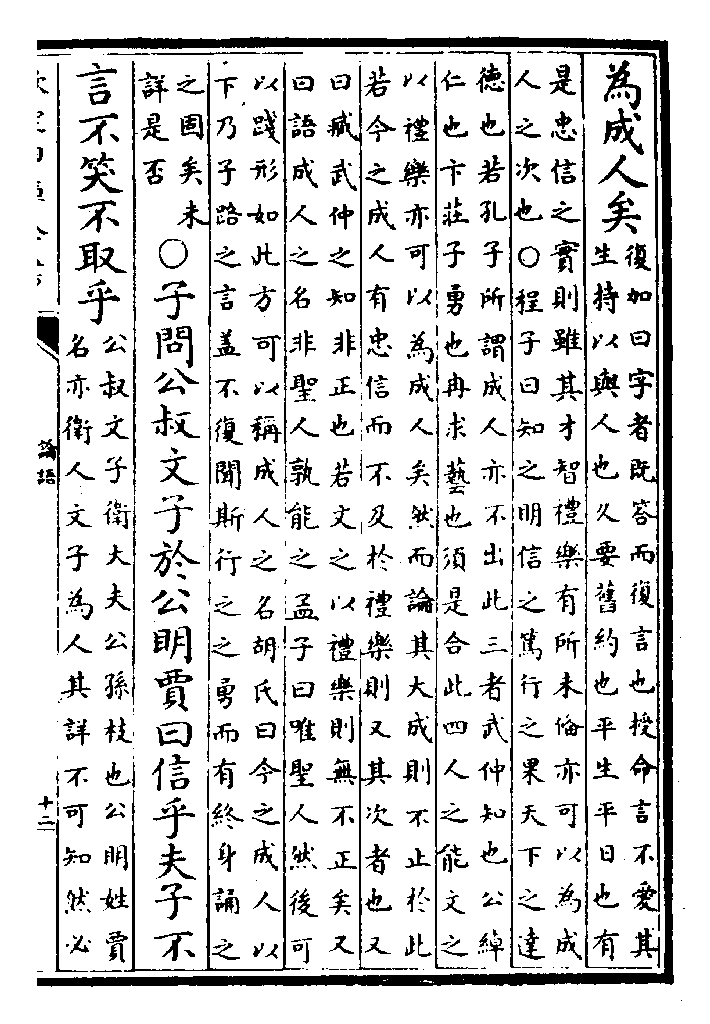 為成人矣
復加曰字者既答而復言也授命言不愛其
生持以與人也久要舊約也平生平日也有
是忠信之實則雖其才智禮樂有所未偹亦可以為成
人之次也○程子曰知之明信之篤行之果天下之達
德也若孔子所謂成人亦不出此三者武仲知也公綽
仁也卞莊子勇也冉求藝也須是合此四人之能文之
以禮樂亦可以為成人矣然而論其大成則不止於此
若今之成人有忠信而不及於禮樂則又其次者也又
曰臧武仲之知非正也若文之以禮樂則無不正矣又
曰語成人之名非聖人孰能之孟子曰唯聖人然後可
以踐形如此方可以稱成人之名胡氏曰今之成人以
下乃子路之言盖不復聞斯行之之勇而有終身誦之
之固矣未
詳是否
○子問公叔文子於公明賈曰信乎夫子不
言不笑不取乎
公叔文子衛大夫公孫枝也公明姓賈
名亦衛人文子為人其詳不可知然必
論語
十二